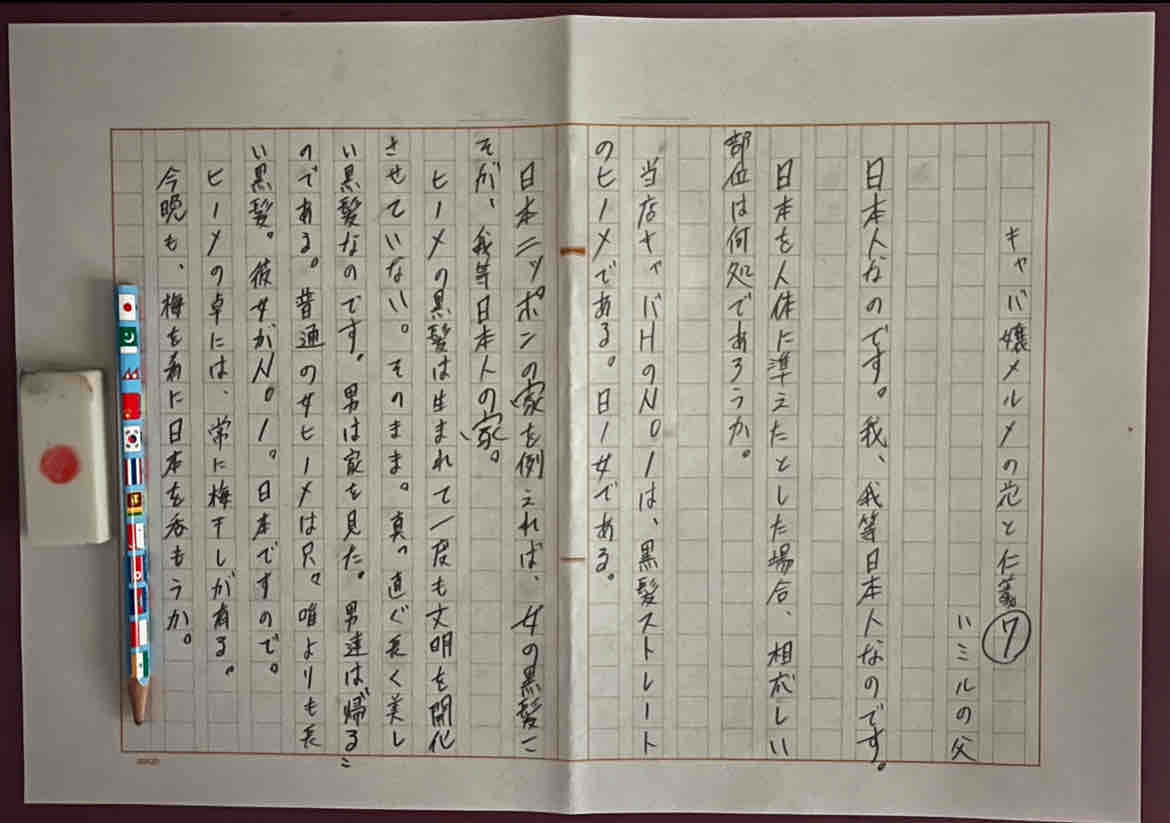 キャバ嬢メルメの恋と仁義⑦
ハミルの父
日本人なのです。我、我等日本人なのです。
日本を人体に準えたとした場合、相応しい
部位は何処であろうか。
当店キャバHのNO1は、黒髪ストレート
のヒーメである。日ー女である。
日本ニッポンの家を例えれば、女の黒髪こ
そが、我等日本人の家。
ヒーメの黒髪は生まれて一度も文明を開化
させていない。そのまま。真っ直ぐ長く美し
い黒髪なのです。男は家を見た。男達は帰るこ
のである。普通の女ヒーメは只。唯よりも長
い黒髪。彼女がNO1。日本ですので。
ヒーメの卓には、常に梅干しが有る。
今晩も、梅を肴に日本を呑もうか。